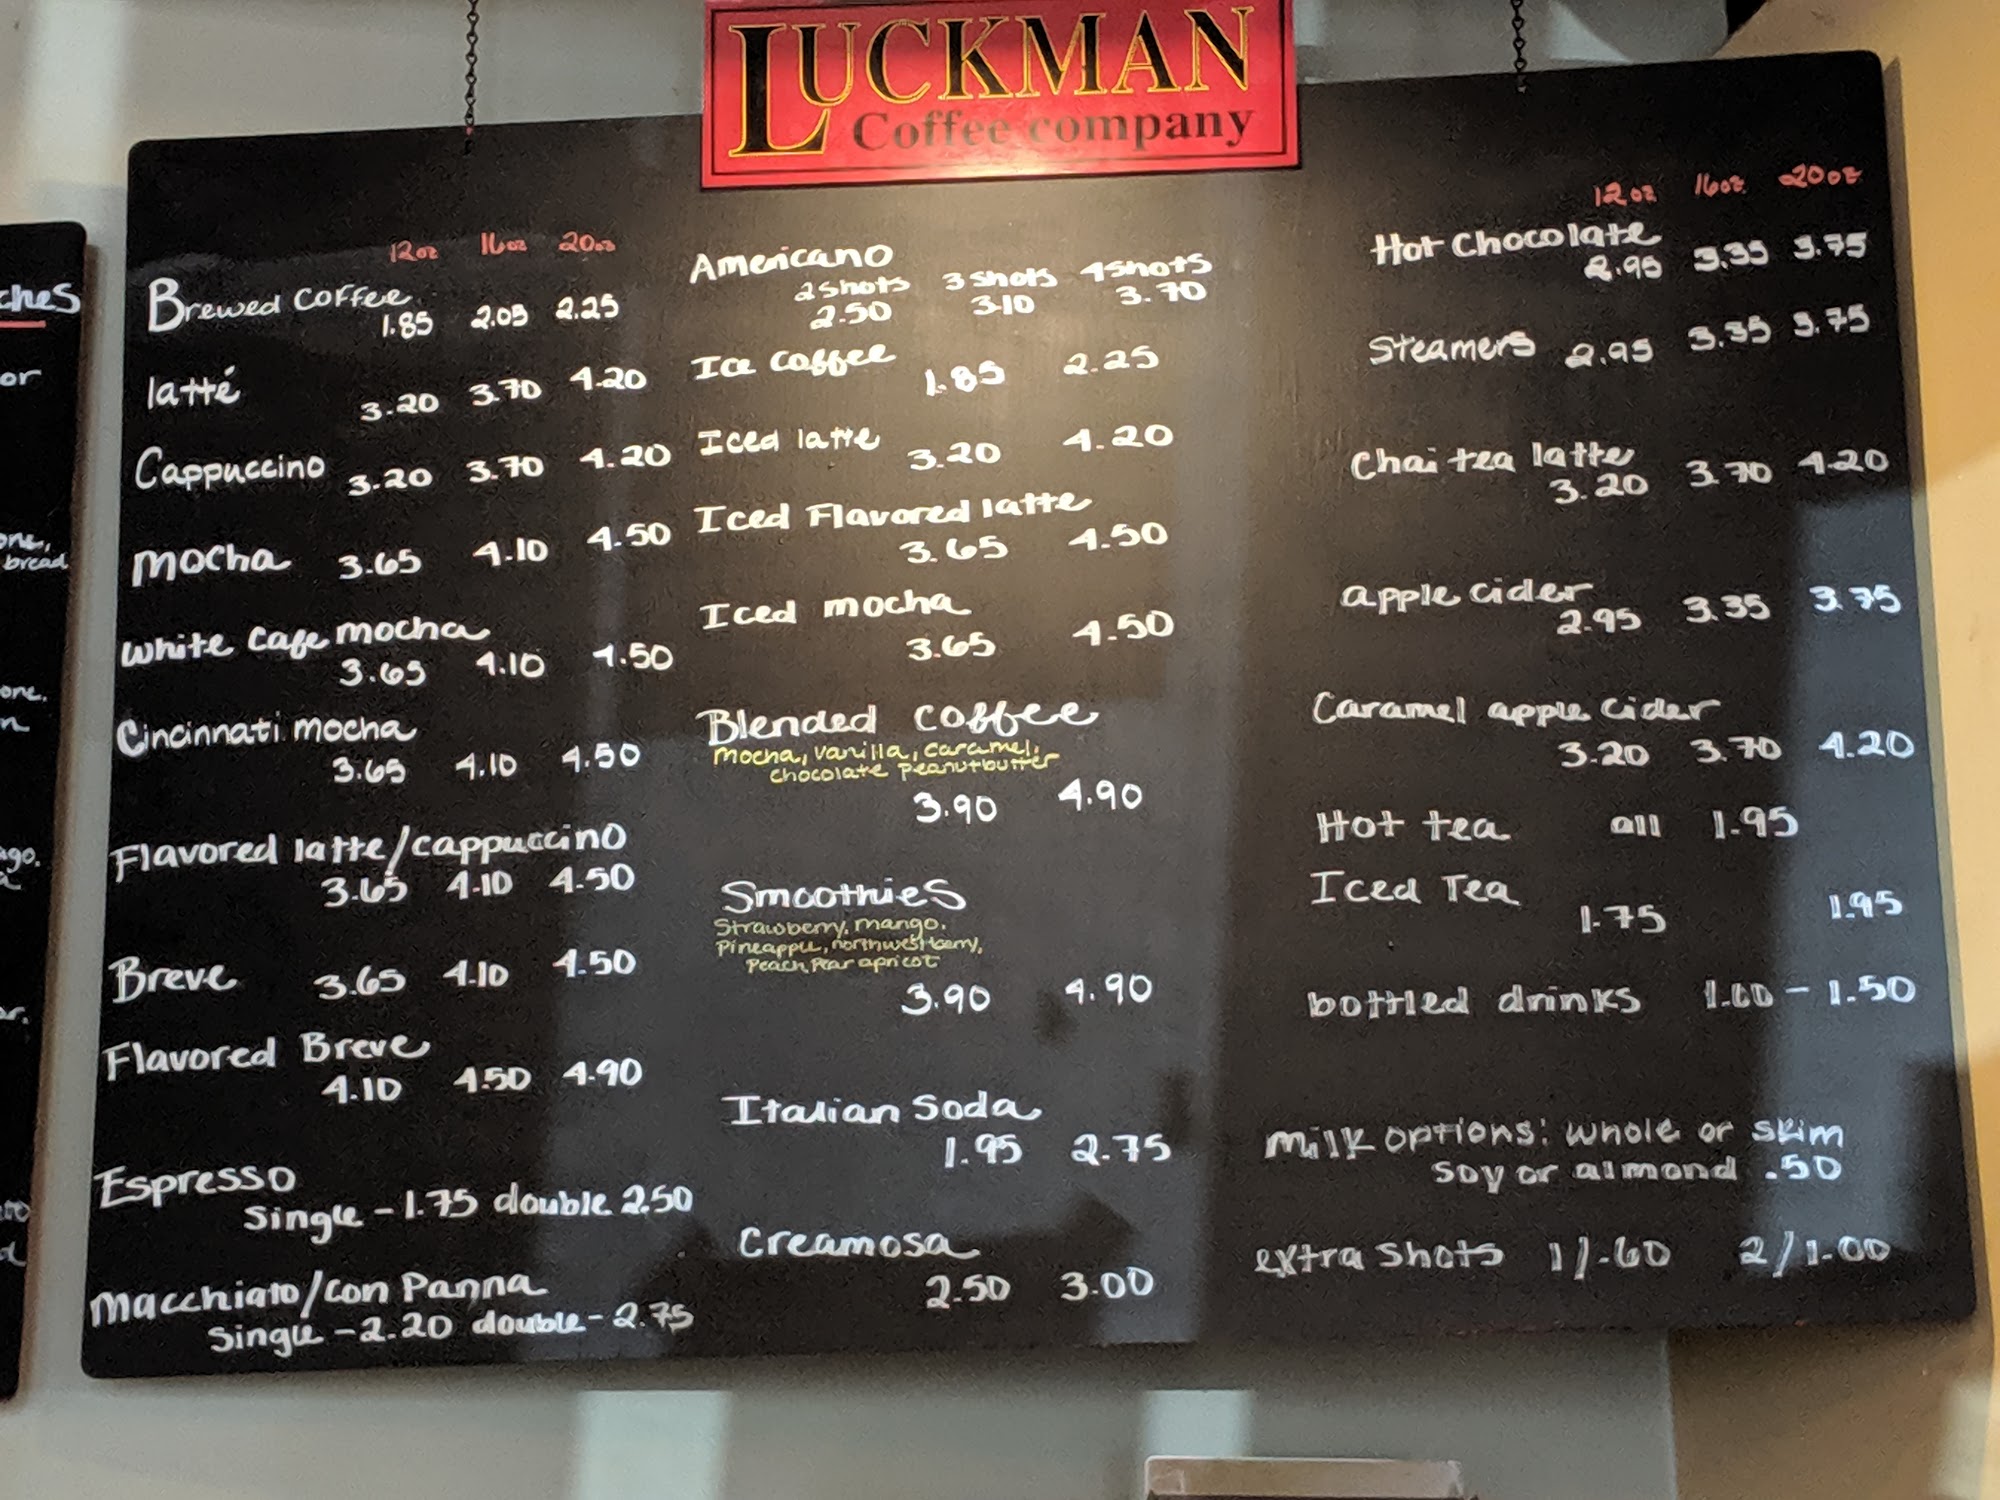 LUCKMAN
Coffee company
ches
or
bread
12oz 16oz 20oz
Brewed Coffee
1.85 2.05 2.25
latté 3.20 3.70 4.20
Cappuccino 3.20 3.70 4.20
mocha 3.65 4.10 4.50
white cafe mocha
3.65 4.10 4.50
Cincinnati mocha
3.65 4.10 4.50
Flavored latte/cappuccino
3.65 4.10 4.50
Breve 3.65 4.10 4.50
Flavored Breve
4.10 4.50 4.90
Espresso
Single - 1.75 double 2.50
Macchiato/Con Panna
Single - 2.20 double - 2.75
Americano
2 shots 3 shots 4 shots
2.50 3.10 3.70
Ice coffee 1.85 2.25
Iced latte 3.20 4.20
Iced Flavored latte
3.65 4.50
Iced mocha
3.65 4.50
Blended coffee
mocha, vanilla, caramel,
chocolate peanutbutter
3.90 4.90
Smoothies
Strawberry, mango,
Pineapple, northwest berry,
Peach, Pear apricot
3.90 4.90
Italian Soda
1.95 2.75
Creamosa
2.50 3.00
12oz 16oz 20oz
Hot Chocolate
2.95 3.35 3.75
Steamers 2.95 3.35 3.75
Chai tea latte
3.20 3.70 4.20
apple cider
2.95 3.35 3.75
Caramel apple cider
3.20 3.70 4.20
Hot tea all 1.95
Iced Tea 1.75 1.95
bottled drinks 1.00 - 1.50
milk options: whole or skim
soy or almond .50
extra shots 1/.60 2/1.00